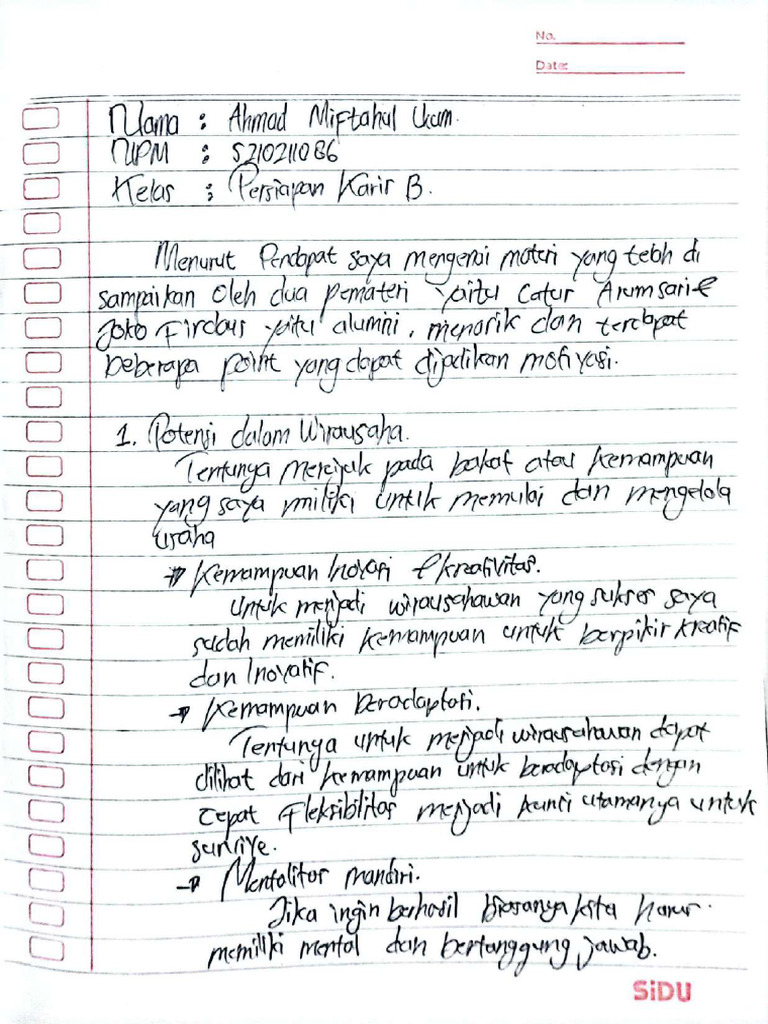 No.
Date:
Nama : Ahmad Miftahul Ulum.
NPM : 5210211086
Kelas : Persiapan Karir B.
Menurut Pendapat saya mengenai materi yang telah di
sampaikan Oleh dua pemateri yaitu Catur Arumsari &
Joko Firdaus yaitu alumni, menarik dan terdapat
beberapa point yang dapat dijadikan motivasi.
1. Potensi dalam Wirausaha.
Tentunya merujuk pada bakat atau kemampuan
yang saya miliki untuk memulai dan mengelola
usaha
→ Kemampuan Inovasi & kreativitas.
Untuk menjadi wirausahawan yang sukses saya
sudah memiliki kemampuan untuk berpikir kreatif
dan Inovatif.
→ Kemampuan beradaptasi.
Tentunya untuk menjadi wirausahawan dapat
dilihat dari kemampuan untuk beradaptasi dengan
cepat Fleksibilitas menjadi kunci utamanya untuk
survive.
→ Mentalitas mandiri.
Jika ingin berhasil biasanya kita harus
memiliki mental dan bertanggung jawab.
SiDU